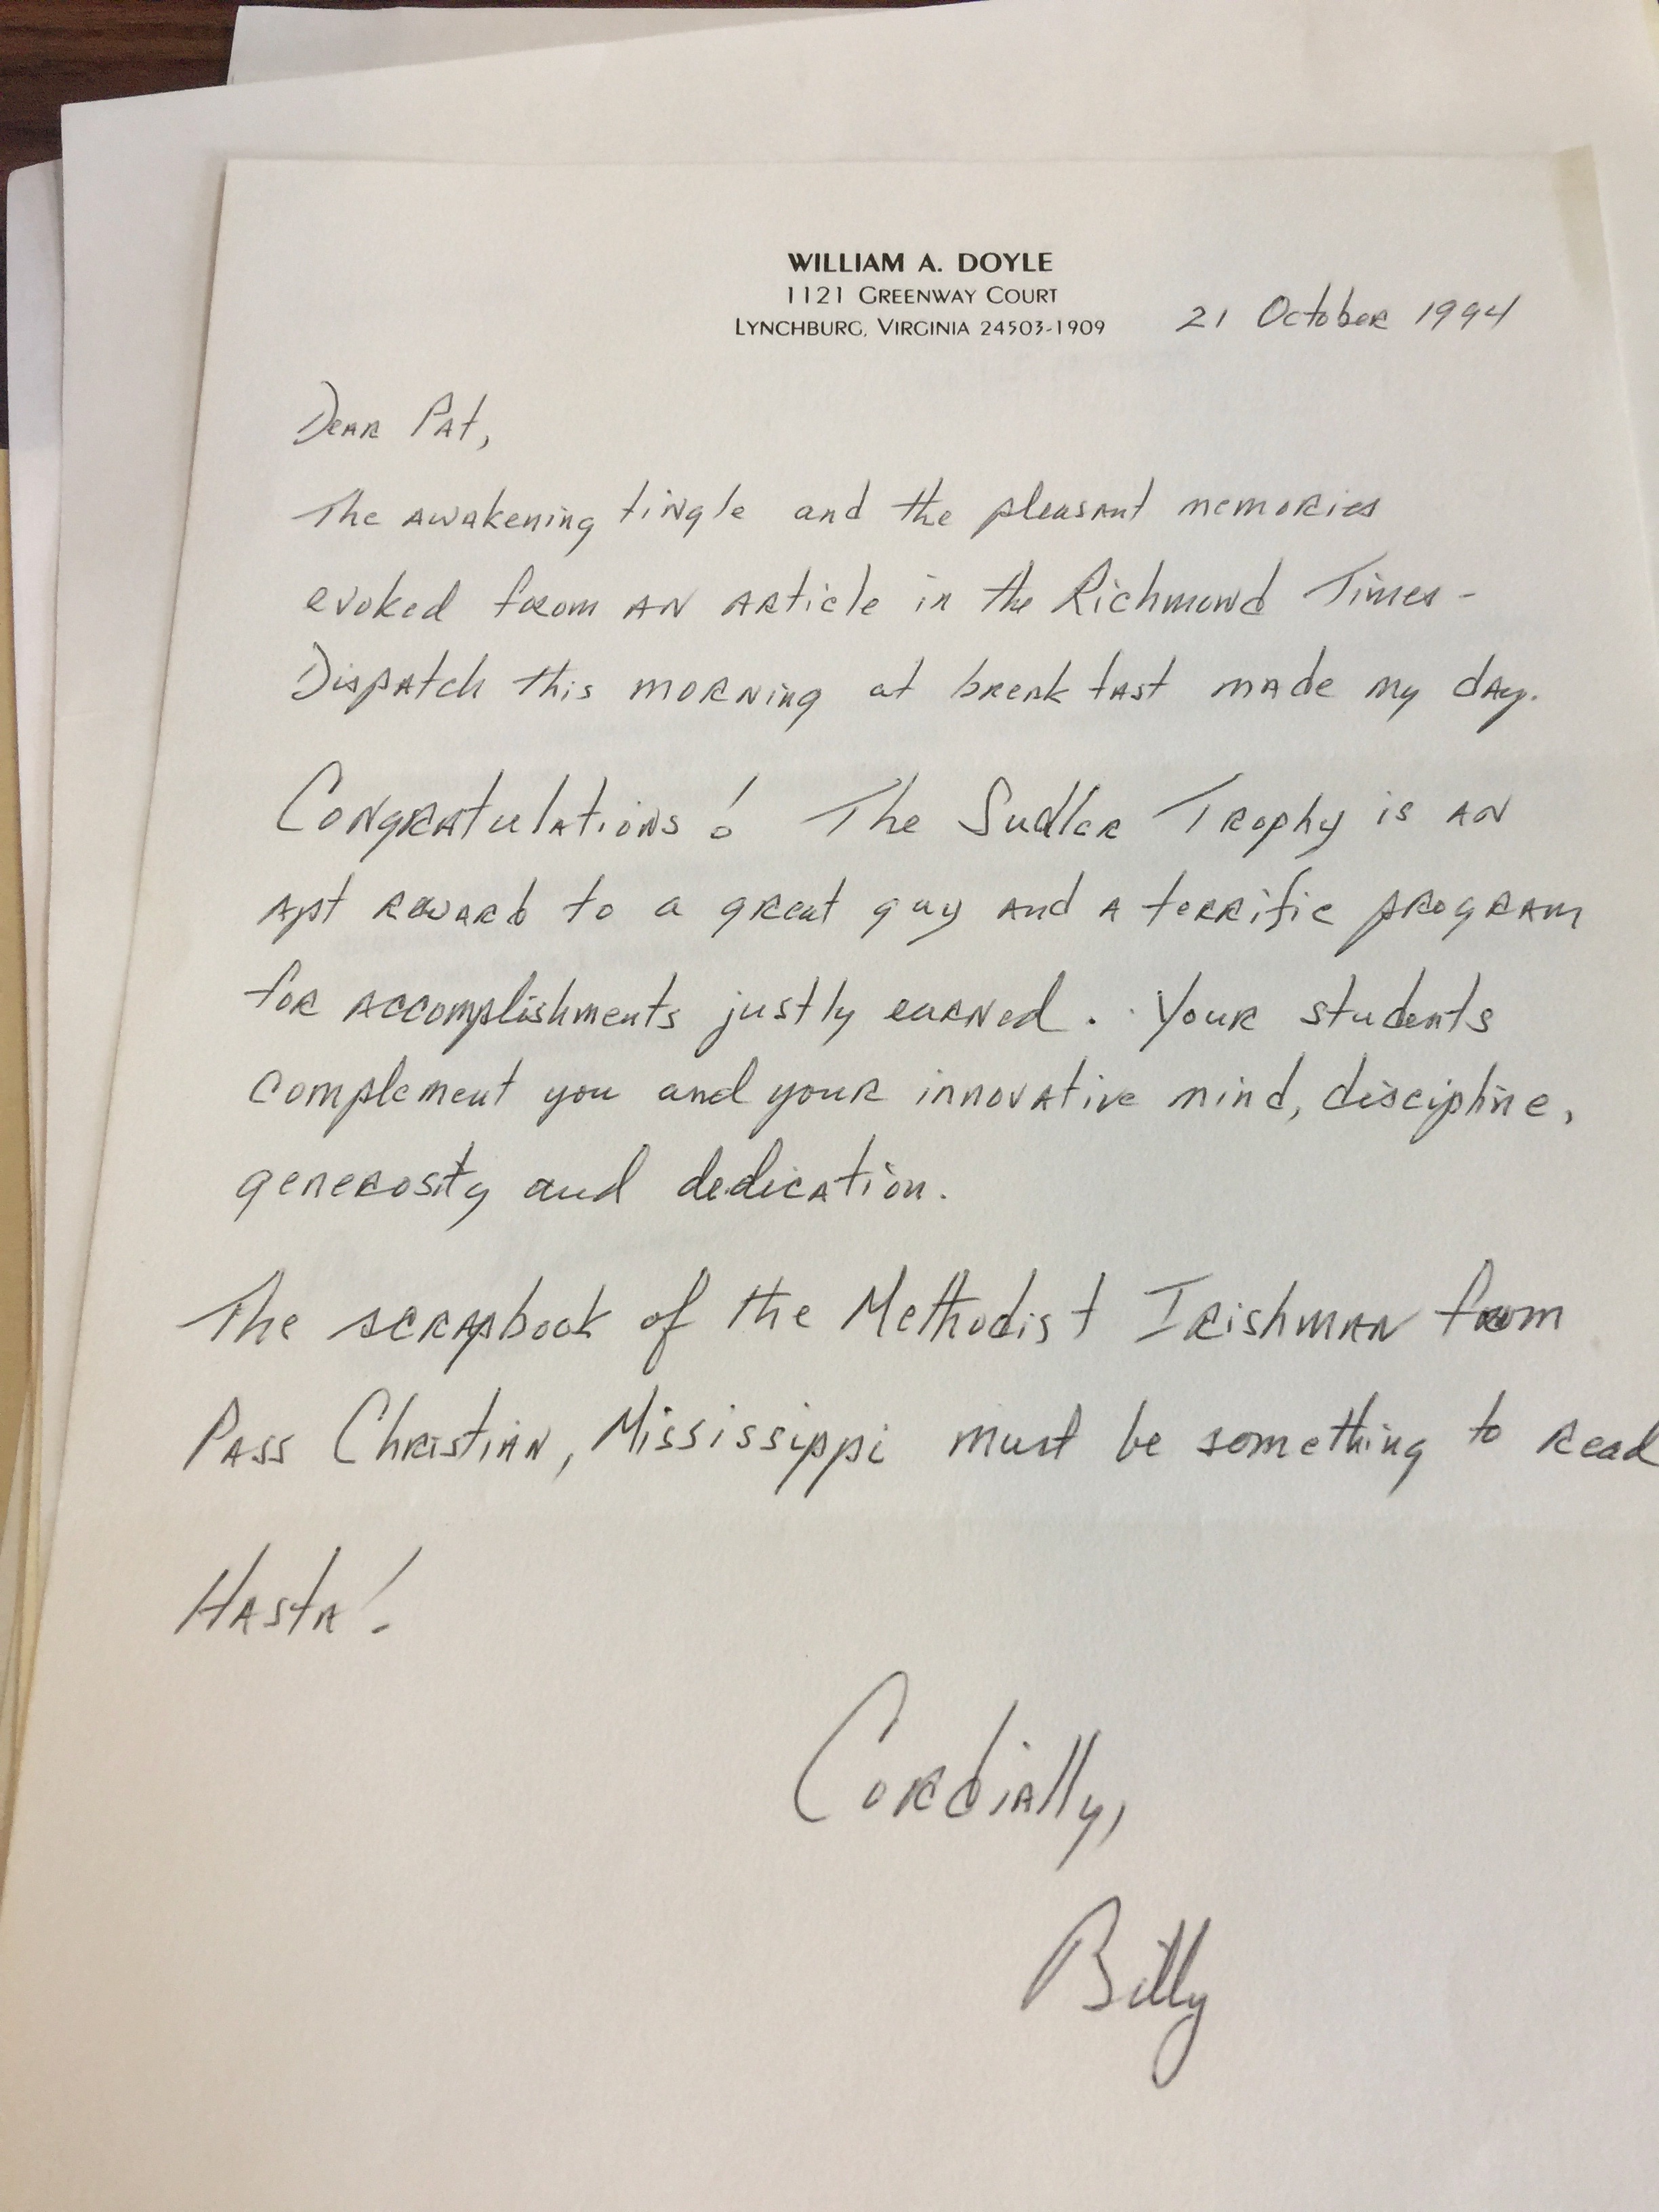 WILLIAM A. DOYLE
1121 GREENWAY COURT
LYNCHBURG, VIRGINIA 24503-1909
21 October 1994
Dear Pat,
The awakening tingle and the pleasant memories
evoked from an article in the Richmond Times-
Dispatch this morning at breakfast made my day.
Congratulations! The Sudler Trophy is an
apt reward to a great guy and a terrific program
for accomplishments justly earned. Your students
complement you and your innovative mind, discipline,
generosity and dedication.
The scrapbook of the Methodist Irishman from
Pass Christian, Mississippi must be something to read
Hasta!
Cordially,
Billy